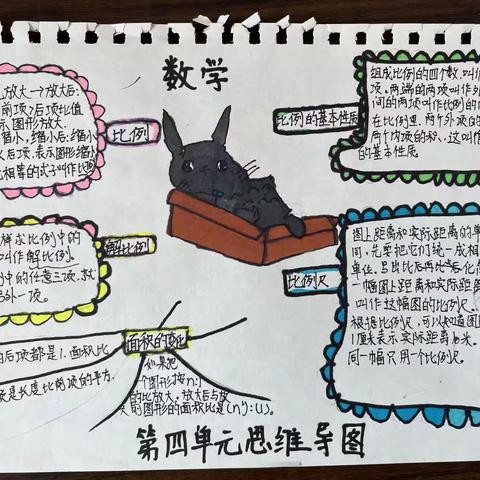 数学
放大→放大后:
前项>后项比值
示图形放大.
缩小, 缩小后:缩小
后项.表示图形缩小
比相等的式子叫作比例
比例
比例的基本性质
组成比例的四个数.叫作
项。两端的两项叫作外
间的两项叫作比例的内
在比例里,两个外项的
两个内项的积.这叫作
的基本性质.
样求比例中的
叫作解比例.
中的任意三项.就
另外一项。
解比例
比例尺
图上距离和实际距离的单
同,先要把它们统一成相
单位.写出比后再比后化简
一幅图上距离和实际距离
叫作这幅图的比例尺.
根据比例尺,可以知道图
1厘米表示实际距离
同一幅只用一个比例尺.
的后项都是1.面积比
是长度比前项的平方.
面积的变化
如果把
个图形按n:1
的比放大,放大后与放
前图形的面积比是
第四单元思维导图